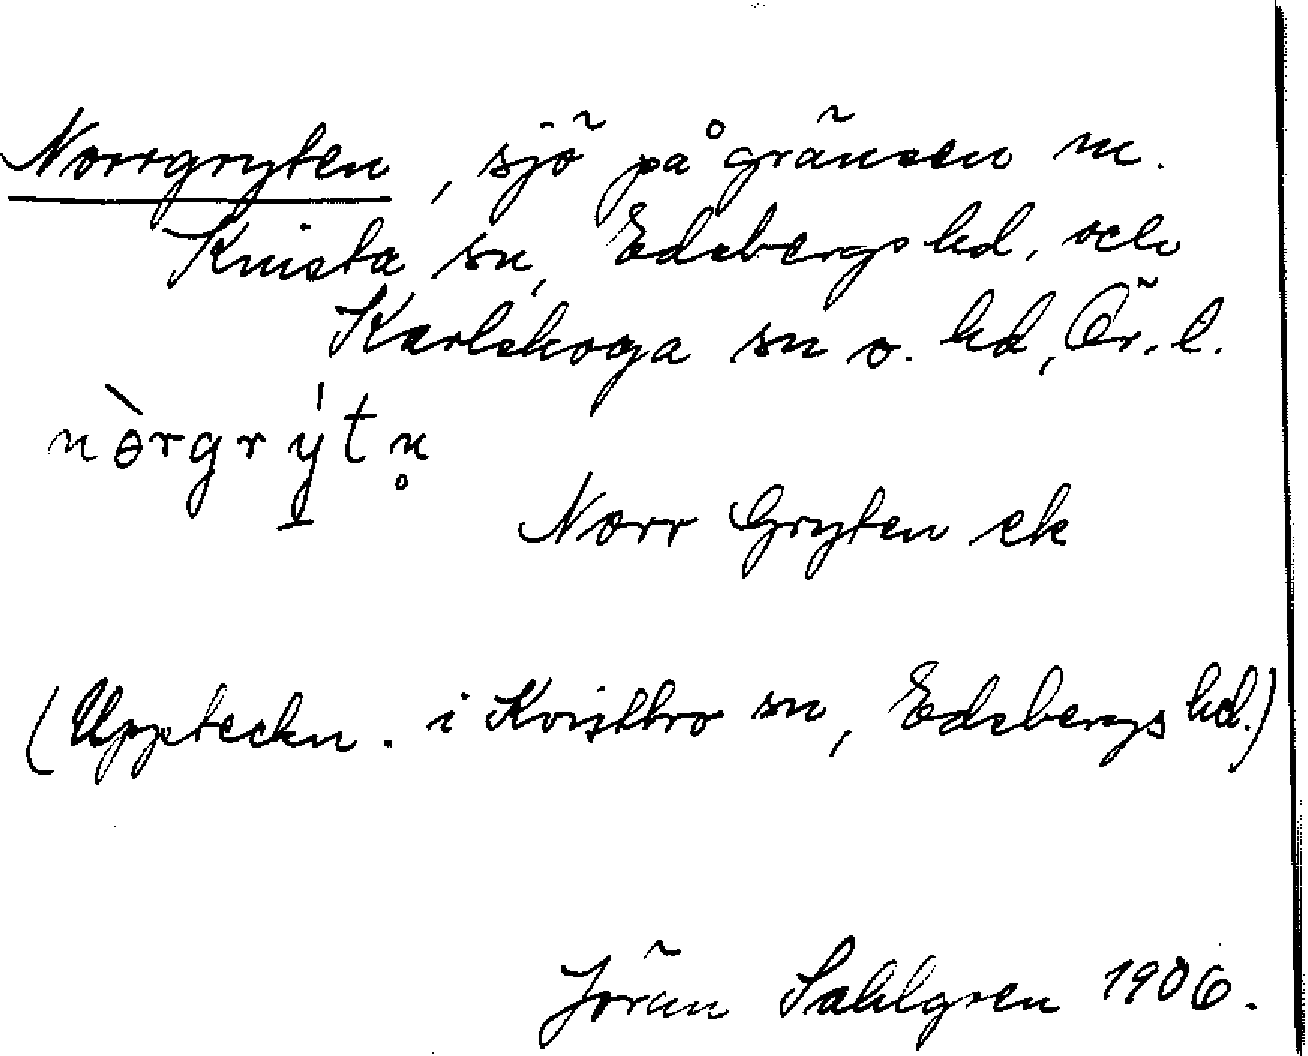 Norrgryten, sjö på gränsen m.
Knista sn, Edsbergs hd. och
Karlskoga sn o. hd, Ör. l.
nòrgrýtn̥
Norr Gryten ek
(Uppteckn. i Kvistbro sn, Edsbergs hd.)
Jöran Sahlgren 1906.